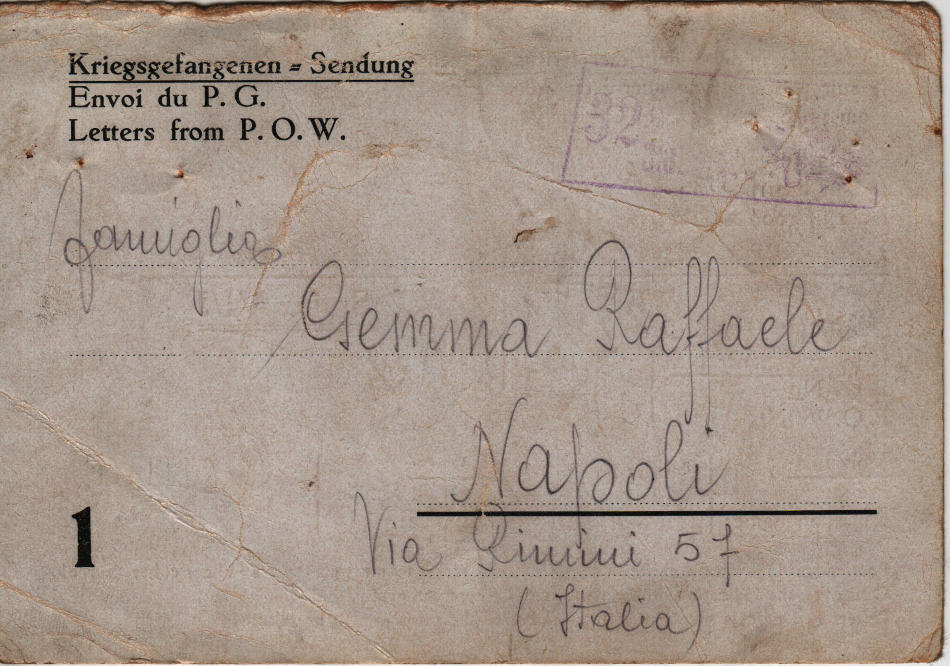 Kriegsgefangenen = Sendung
Envoi du P. G.
Letters from P. O. W.
32
famiglia
Gemma Raffaele
Napoli
1
Via Rimini 57
(Italia)